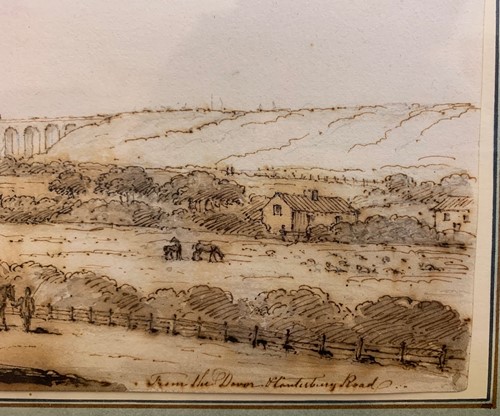 From the Dover & Canterbury Road